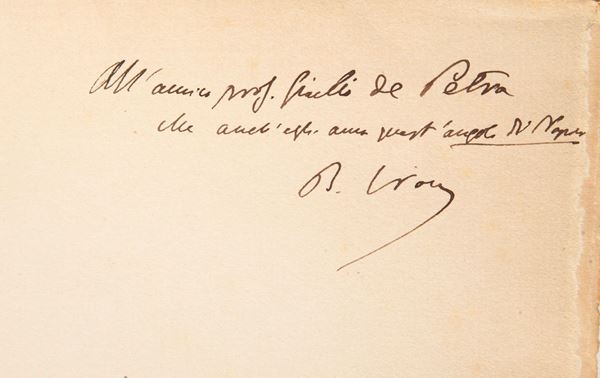 All'amico prof. Giulio de Petra
che anch'egli ama quest'angolo di Napoli
B. Croce